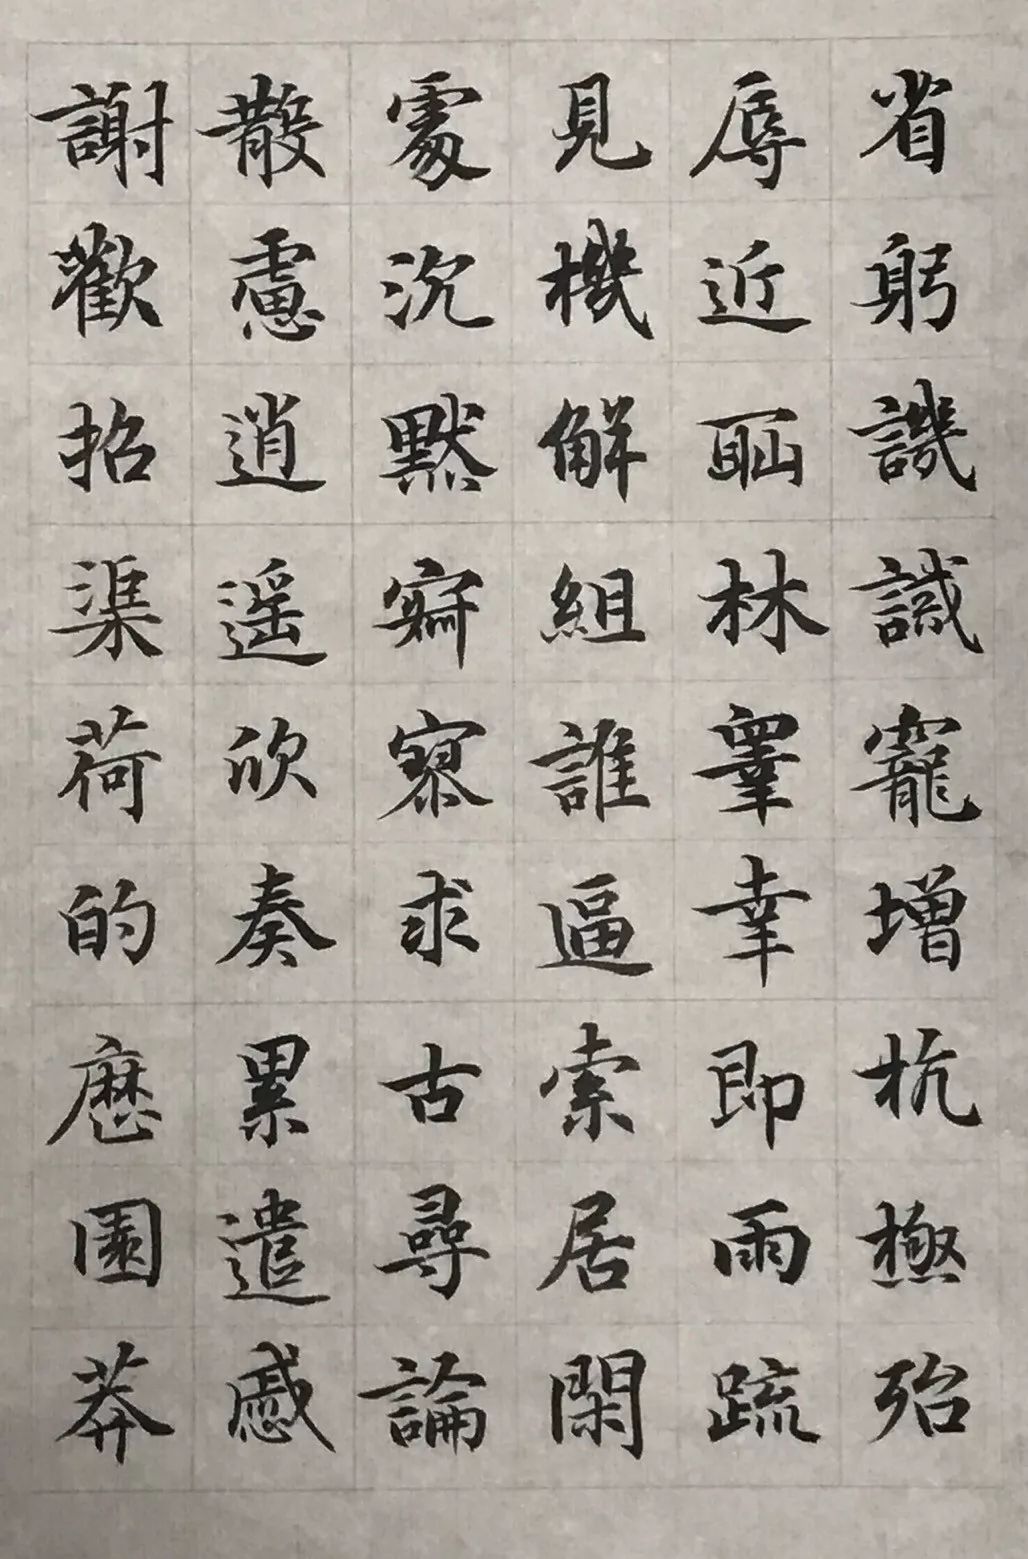 省躬譏誡寵增杭極殆
辱近耻林睾幸即兩疏
見機解組誰逼索居閑
處沉默寂寥求古尋論
散慮逍遥欣奏累遣慼
謝歡招渠荷的歷園莽